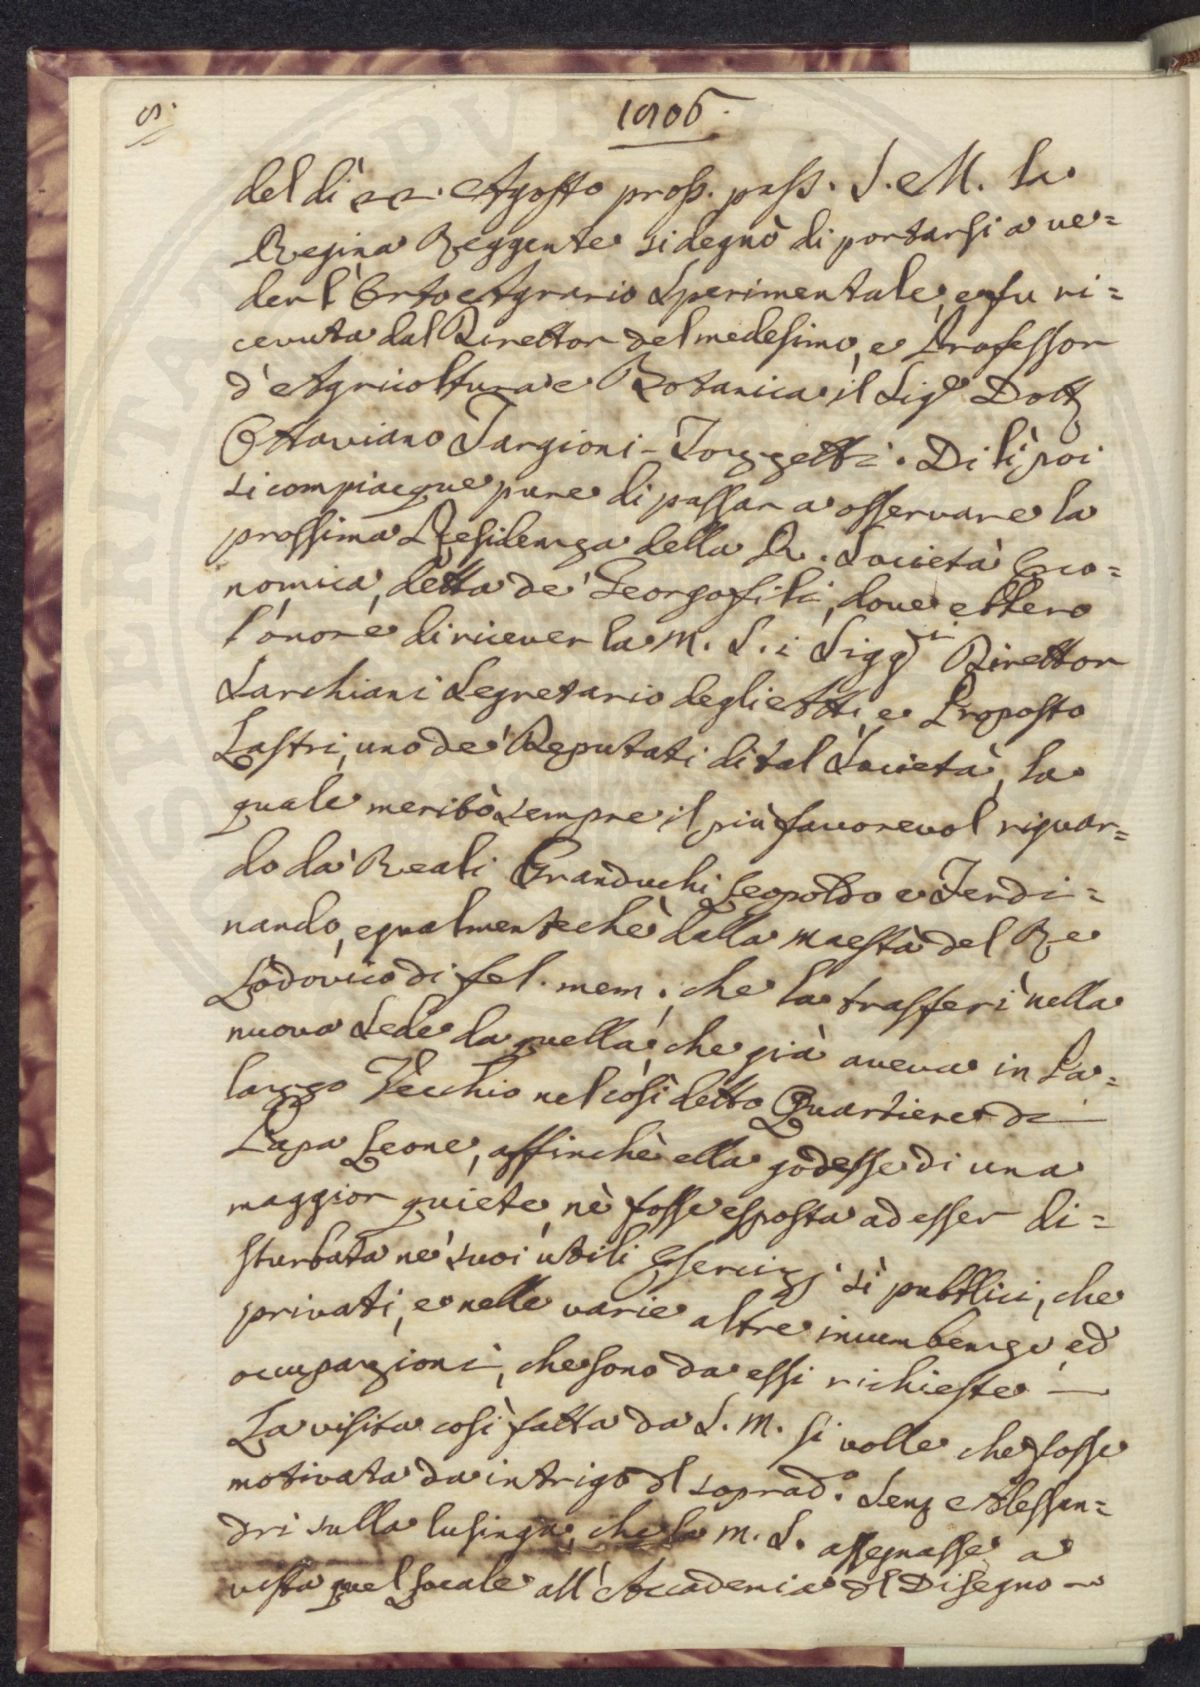 8.
1806.
del dì 22. Agosto pross. pass. S. M. la
Regina Reggente si degnò di portarsi a ve=
der l'Orto Agrario Sperimentale, e fu ri=
cevuta dal Direttor del medesimo, e Professor
d'Agricoltura e Botanica il Sig.e Dott.
Ottaviano Targioni-Tozzetti. Di lì poi
si compiacque pure di passar a osservare la
prossima Residenza della R. Società Eco=
nomica, detta de' Georgofili, dove ebbero
l'onore di ricever la M. S. i Sigg.ri Direttor
Sarchiani Segretario degli Atti, e Proposto
Lastri, uno de' Deputati di tal Società, la
quale meritò sempre il più favorevol riguar=
do da' Reali Granduchi Leopoldo e Ferdi=
nando, egualmentechè dalla Maestà del Re
Lodovico di fel. mem., che la trasferì nella
nuova Sede da quella, che già aveva in Pa=
lazzo Vecchio nel così detto Quartiere di
Papa Leone, affinchè ella godesse di una
maggior quiete, nè fosse esposta ad esser di=
sturbata ne' suoi utili Esercizj sì pubblici, che
privati, e nelle varie altre incumbenze, ed
occupazioni, che sono da essi richieste —
La visita così fatta da S. M. si volle che fosse
motivata da intrigo dl soprad.o Sen. Alessan=
dri sulla lusinga, che la M. S. assegnasse a
vista quel locale all'Accademia dl Disegno —